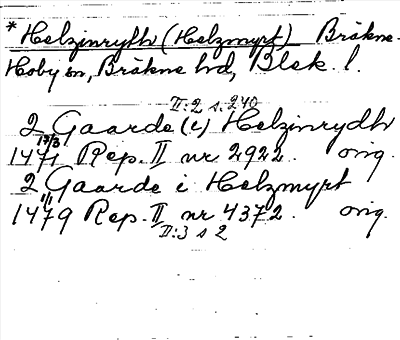 * Helzinrydh (Helzmyrt) Bräkne-
Hoby sn, Bräkne hd, Blek. l.
II:2 s. 240
2 Gaarde (i) Helzinrydh
13/3
1471 Rep. II nr 2922. orig.
2 Gaarde i Helzmyrt
1/1
1479 Rep. II nr 4372. orig.
II:3 s 2